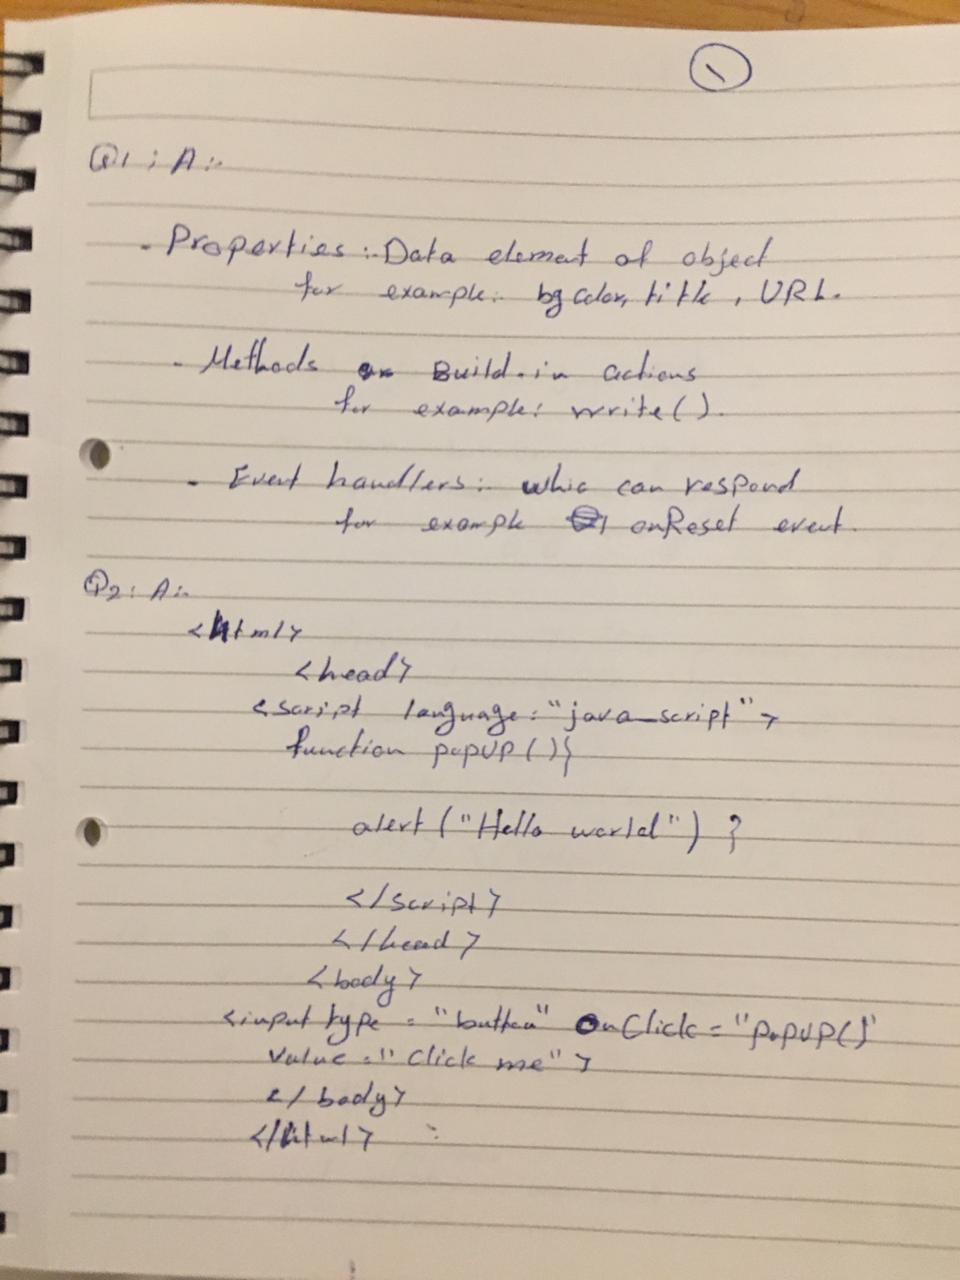 Q1 : A :-
- Properties :- Data element of object
for example :- bgcolor, title , URL.
- Methods Build-in actions
for example : write ( ).
- Event handlers :- whic can respond
for example onReset event.
Q2 : A :-
<html>
<head>
<script language = "java_script" >
function popUP ( ) {
alert ( "Hello world" ) }
</script>
</head>
<body>
<input type = "button" OnClick = "popUP( )"
value = "Click me" >
</body>
</html>